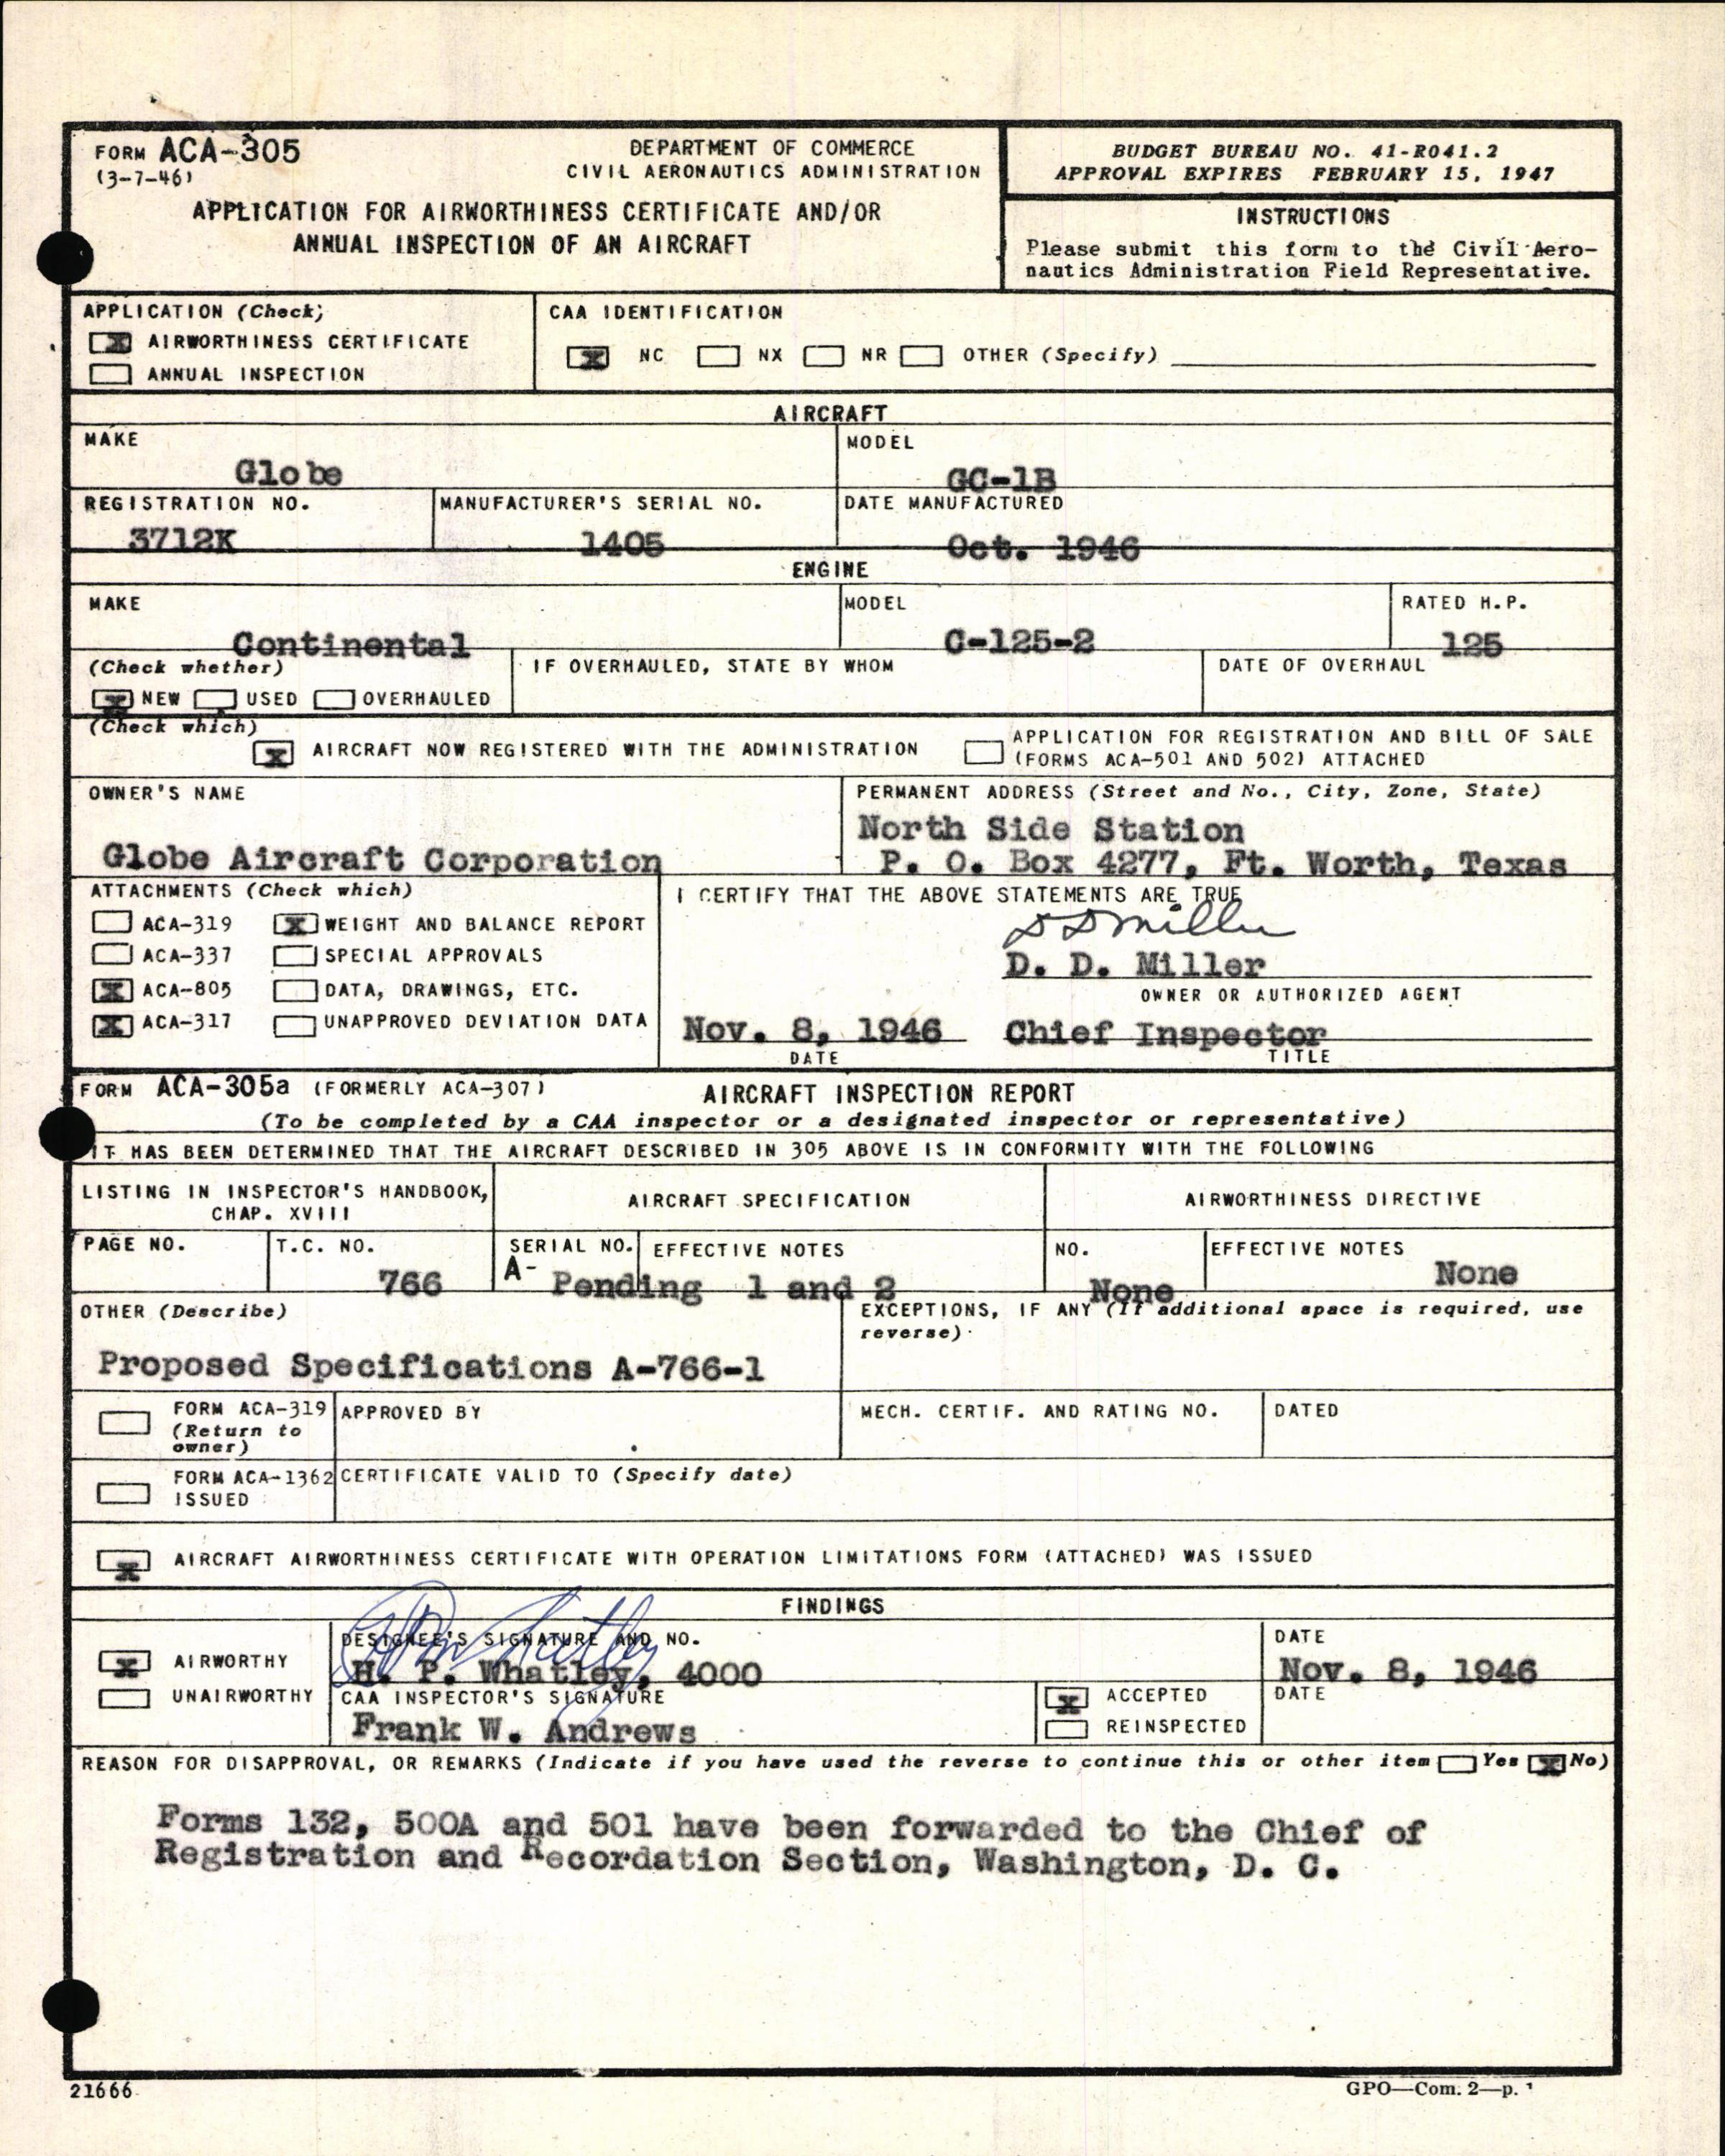 FORM ACA-305
(3-7-46)
DEPARTMENT OF COMMERCE
CIVIL AERONAUTICS ADMINISTRATION
APPLICATION FOR AIRWORTHINESS CERTIFICATE AND/OR
ANNUAL INSPECTION OF AN AIRCRAFT
BUDGET BUREAU NO. 41-R041.2
APPROVAL EXPIRES FEBRUARY 15, 1947
INSTRUCTIONS
Please submit this form to the Civil Aero-
nautics Administration Field Representative.
APPLICATION (Check)
X AIRWORTHINESS CERTIFICATE
ANNUAL INSPECTION
CAA IDENTIFICATION
X NC NX NR OTHER (Specify)
AIRCRAFT
MAKE
Globe
MODEL
GC-1B
REGISTRATION NO.
3712K
MANUFACTURER'S SERIAL NO.
1405
DATE MANUFACTURED
Oct. 1946
ENGINE
MAKE
Continental
MODEL
C-125-2
RATED H.P.
125
(Check whether)
X NEW USED OVERHAULED
IF OVERHAULED, STATE BY WHOM
DATE OF OVERHAUL
(Check which)
X AIRCRAFT NOW REGISTERED WITH THE ADMINISTRATION
APPLICATION FOR REGISTRATION AND BILL OF SALE
(FORMS ACA-501 AND 502) ATTACHED
OWNER'S NAME
Globe Aircraft Corporation
PERMANENT ADDRESS (Street and No., City, Zone, State)
North Side Station
P. O. Box 4277, Ft. Worth, Texas
ATTACHMENTS (Check which)
ACA-319 X WEIGHT AND BALANCE REPORT
ACA-337 SPECIAL APPROVALS
X ACA-805 DATA, DRAWINGS, ETC.
X ACA-317 UNAPPROVED DEVIATION DATA
I CERTIFY THAT THE ABOVE STATEMENTS ARE TRUE
D D Miller
D. D. Miller
OWNER OR AUTHORIZED AGENT
Nov. 8, 1946 Chief Inspector
DATE TITLE
FORM ACA-305a (FORMERLY ACA-307) AIRCRAFT INSPECTION REPORT
(To be completed by a CAA inspector or a designated inspector or representative)
IT HAS BEEN DETERMINED THAT THE AIRCRAFT DESCRIBED IN 305 ABOVE IS IN CONFORMITY WITH THE FOLLOWING
LISTING IN INSPECTOR'S HANDBOOK,
CHAP. XVIII
AIRCRAFT SPECIFICATION
AIRWORTHINESS DIRECTIVE
PAGE NO.
T.C. NO.
766
SERIAL NO.
A- Pending
EFFECTIVE NOTES
1 and 2
NO.
None
EFFECTIVE NOTES
None
OTHER (Describe)
Proposed Specifications A-766-1
EXCEPTIONS, IF ANY (If additional space is required, use
reverse).
FORM ACA-319
(Return to
owner)
APPROVED BY
MECH. CERTIF. AND RATING NO.
DATED
FORM ACA-1362
ISSUED
CERTIFICATE VALID TO (Specify date)
X AIRCRAFT AIRWORTHINESS CERTIFICATE WITH OPERATION LIMITATIONS FORM (ATTACHED) WAS ISSUED
FINDINGS
X AIRWORTHY
UNAIRWORTHY
DESIGNEE'S SIGNATURE AND NO.
HP Whatley
H. P. Whatley, 4000
DATE
Nov. 8, 1946
CAA INSPECTOR'S SIGNATURE
Frank W. Andrews
X ACCEPTED
REINSPECTED
DATE
REASON FOR DISAPPROVAL, OR REMARKS (Indicate if you have used the reverse to continue this or other item Yes X No)
Forms 132, 500A and 501 have been forwarded to the Chief of
Registration and Recordation Section, Washington, D. C.
21666
GPO—Com. 2—p. 1